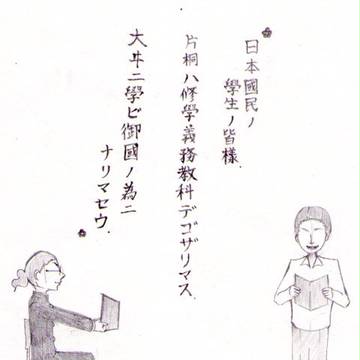 日本國民ノ
學生ノ皆様.
片桐ハ修學義務教科デゴザリマス.
大ヰニ學ビ御國ノ為ニ
ナリマセウ.